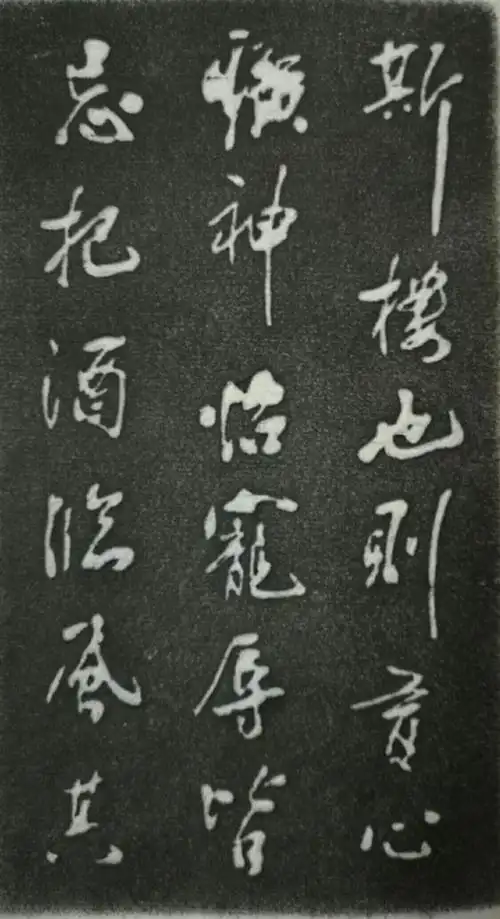 斯樓也則有心
曠神怡寵辱皆
忘把酒臨風其